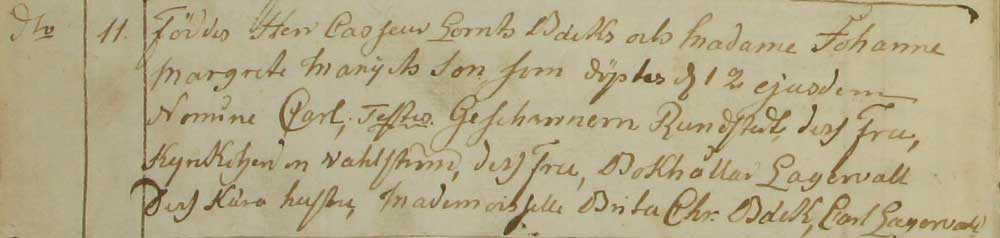 Dto 11. Föddes Herr Casseur Lorents Bäcks och Madame Johanne
Margreta Manychs Son som döptes d 12 ejusdem
Nomine Carl, Testes. Geschwornern Rundstedt, dess Fru,
Wahlström, dess Fru, Bokhållar Lagervall
Dess Kära hustru, Mademoiselle Brita Chr. Bäck, Carl Lagervall